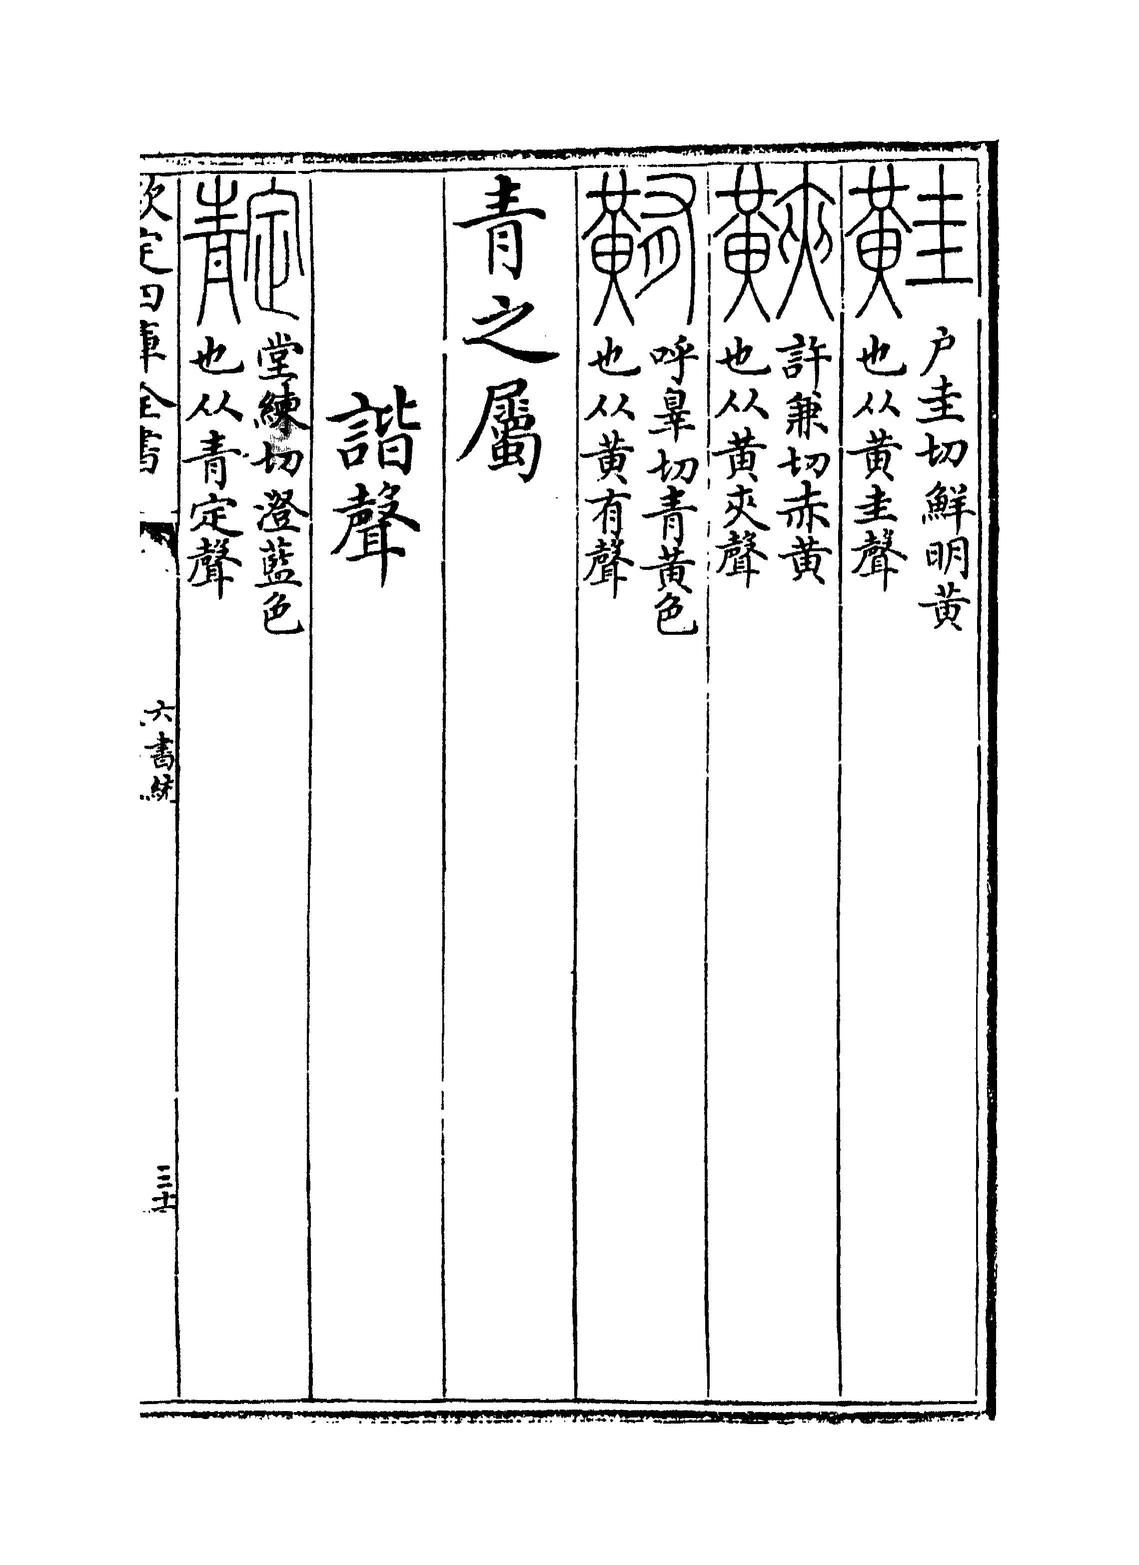 黊
户圭切鮮明黄
也从黄圭聲
䵌
許兼切赤黄
也从黄夾聲
䵋
呼辠切青黄色
也从黄有聲
青之屬
諧聲
靛
堂練切澄藍色
也从青定聲
欽定四庫全書
六書統
三十